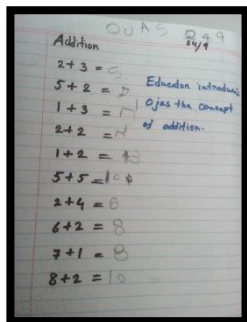 OJAS
Addition
2+3 = 5
5+2 =
1+3 =
2+2 =
1+2 = 3
5+5 = 10
2+4 = 6
6+2 = 8
7+1 = 8
8+2 = 10
Educator introduces
Ojas the concept
of addition.